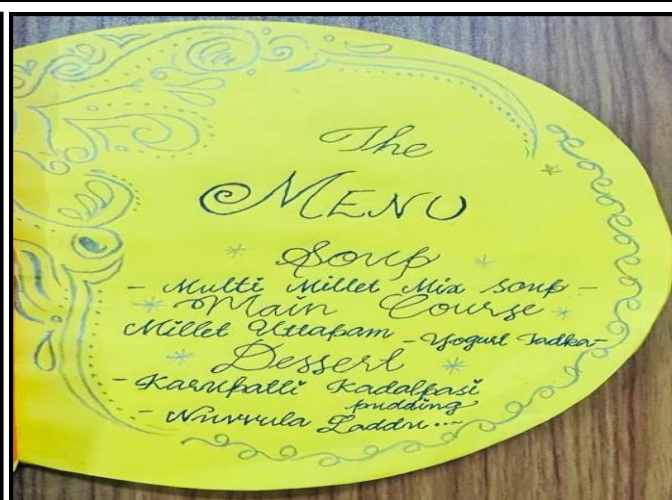 The
MENU
Soup
- Multi Millet Mix Soup -
Main Course
Millet Uttapam - Yogurt Tadka -
Dessert
- Karupatti Kadalpasi
pudding
- Nuvvula Laddu...